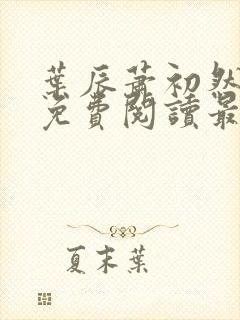 葉辰蕭初然
免費閱讀最
夏末葉